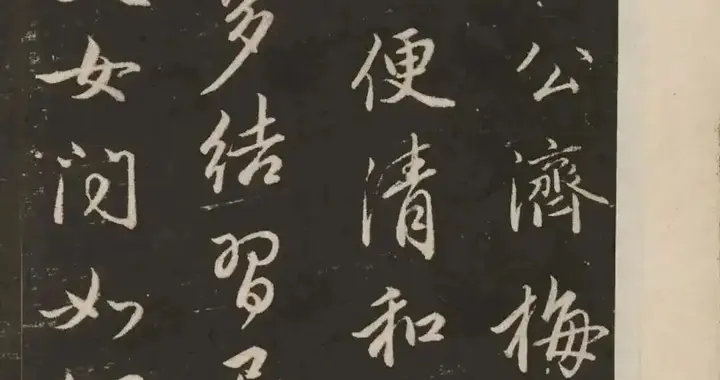 公濟梅
便清和
多結習
女問如